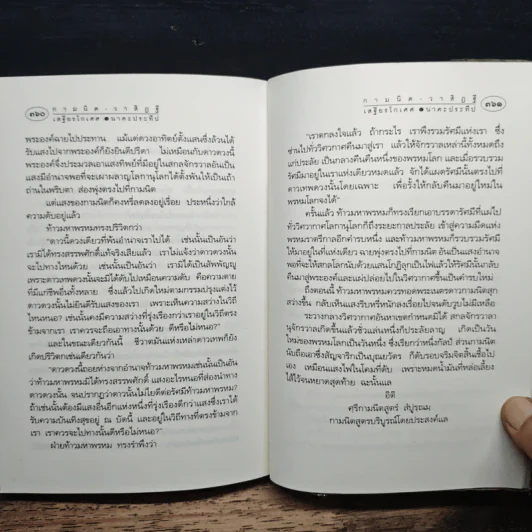 ๓๖๐
กามนิต - วาสิฏฐี
เสฐียรโกเศศ ● นาคะประทีป
พระองค์ฉายไปประทาน แม้แต่ดวงอาทิตย์ตั้งแสนซึ่งล้วนได้
รับแสงไปจากพระองค์ก็ยังยินดีปรีดา ไม่เหมือนกับดาวดวงนี้
พระองค์จึงประมวลเอาแสงทิพย์ที่มีอยู่ในสกลจักรวาลอันเป็น
แสงมีอำนาจพอที่จะเผาผลาญโลกานุโลกได้ตั้งพันให้เป็นเถ้า
ถ่านในพริบตา ส่องพุ่งตรงไปที่กามนิต
แต่แสงของกามนิตก็คงหรี่ลดลงอยู่เรื่อย ประหนึ่งว่าใกล้
ความดับอยู่แล้ว
ท้าวมหาพรหมทรงปริวิตกว่า
"ดาวนี้ดวงเดียวที่พ้นอำนาจเราไปได้ เช่นนั้นเป็นอันว่า
เรามิได้ทรงสรรพศักดิ์แท้จริงเสียแล้ว เราไม่แจ้งว่าดาวดวงนั้น
จะไปทางไหนด้วย เช่นนั้นเป็นอันว่า เรามิได้เป็นสัพพัญญู
เพราะดาวเทพดวงนั้นจะมิได้ดับไปเหมือนความดับ คือความตาย
ที่มีแก่ชีพอื่นทั้งหลาย ซึ่งแล้วไปเกิดใหม่ตามกรรมปรุงแต่งไว้
ดาวดวงนั้นไม่ยินดีรับแสงของเรา เพราะเห็นความสว่างในวิถี
ไหนหนอ? เช่นนั้นคงมีความสว่างที่รุ่งเรืองกว่าเราอยู่ในวิถีตรง
ข้ามจากเรา เราควรจะถือเอาทางนั้นด้วย ดีหรือไม่หนอ?"
และในขณะเดียวกันนี้ ชีวาตมันแห่งเหล่าดาวเทพก็ยัง
เกิดปริวิตกเช่นเดียวกันว่า
"ดาวดวงนี้ถอยห่างจากอำนาจท้าวมหาพรหม เช่นนั้นเป็นอัน
ว่าท้าวมหาพรหมมิได้ทรงสรรพศักดิ์ แสงอะไรหนอที่ส่องนำทาง
ดาวดวงนั้น จนปรากฏว่าดาวดวงนั้นไม่ใยดีต่อรัศมีท้าวมหาพรหม?
ถ้าเช่นนั้นต้องมีแสงอื่นอีกแห่งหนึ่งที่รุ่งเรืองดีกว่าแสงซึ่งเราได้
รับความบันเทิงสุขอยู่ ณ บัดนี้ และอยู่ในวิถีทางที่ตรงข้ามจาก
เรา เราควรจะไปทางนั้นดีหรือไม่หนอ?"
ฝ่ายท้าวมหาพรหม ทรงรำพึงว่า
กามนิต - วาสิฏฐี
เสฐียรโกเศศ ● นาคะประทีป
๓๖๑
"เราตกลงใจแล้ว ถ้ากระไร เราพึงรวมรัศมีแห่งเรา ซึ่ง
ซ่านไปทั่ววิศวากาศคืนมาสู่เรา แล้วให้จักรวาลเหล่านี้ทั้งหมดถึง
แก่ประลัย เป็นกลางคืนคืนหนึ่งของพรหมโลก และเมื่อรวบรวม
รัศมีมาอยู่ในเราแห่งเดียวหมดแล้ว จักได้แผดรัศมีนั้นตรงไปที่
ดาวเทพดวงนั้นโดยเฉพาะ เพื่อรั้งให้กลับคืนมาอยู่ใหม่ใน
พรหมโลกจงได้"
ครั้นแล้ว ท้าวมหาพรหมก็ทรงเรียกเอาบรรดารัศมีที่แผ่ไป
ทั่ววิศวากาศโลกานุโลกก็ถึงระยะกาลประลัย เข้าสู่ความมืดแห่ง
พรหมราตรีกาลอีกคำรบหนึ่ง และท้าวมหาพรหมก็รวบรวมรัศมี
ให้มาอยู่ในที่แห่งเดียว ฉายพุ่งตรงไปที่กามนิต อันเป็นแสงมีอำนาจ
พอที่จะให้สกลโลกนับด้วยแสนโกฏิลุกเป็นไฟแล้วให้รัศมีนั้นกลับ
คืนมาสู่พระองค์และแผ่ปล่อยไปในวิศวากาศขึ้นเป็นคำรบใหม่
ถึงตอนนี้ ท้าวมหาพรหมควรทอดพระเนตรดาวกามนิตสุก
สว่างขึ้น กลับเห็นแสงริบหรี่หนักลงเรื่อยไปจนดับวูบไม่มีเหลือ
ระวางกลางวิศวากาศอันหาเขตกำหนดมิได้ สกลจักรวาลา
นุจักรวาลเกิดขึ้นแล้วชั่วแล่นหนึ่งก็ประลัยลาญ เกิดเป็นวัน
ใหม่ของพรหมโลกเป็นวันหนึ่ง ซึ่งเรียกว่าหนึ่งกัลป์ ส่วนกามนิต
นับถือเอาซึ่งสัญจาริกเป็นบุณยวัตร ก็ดับรอบจริมจิตสิ้นเชื้อไป
เอง เหมือนแสงไฟในโคมที่ดับ เพราะหมดน้ำมันที่หล่อเลี้ยง
ไส้ไว้จนหยาดสุดท้าย ฉะนั้นแล
อิติ
ศรีกามนีตสูตรํ สํปูรณมฺ
กามนิตสูตรบริบูรณ์โดยประสงค์แล